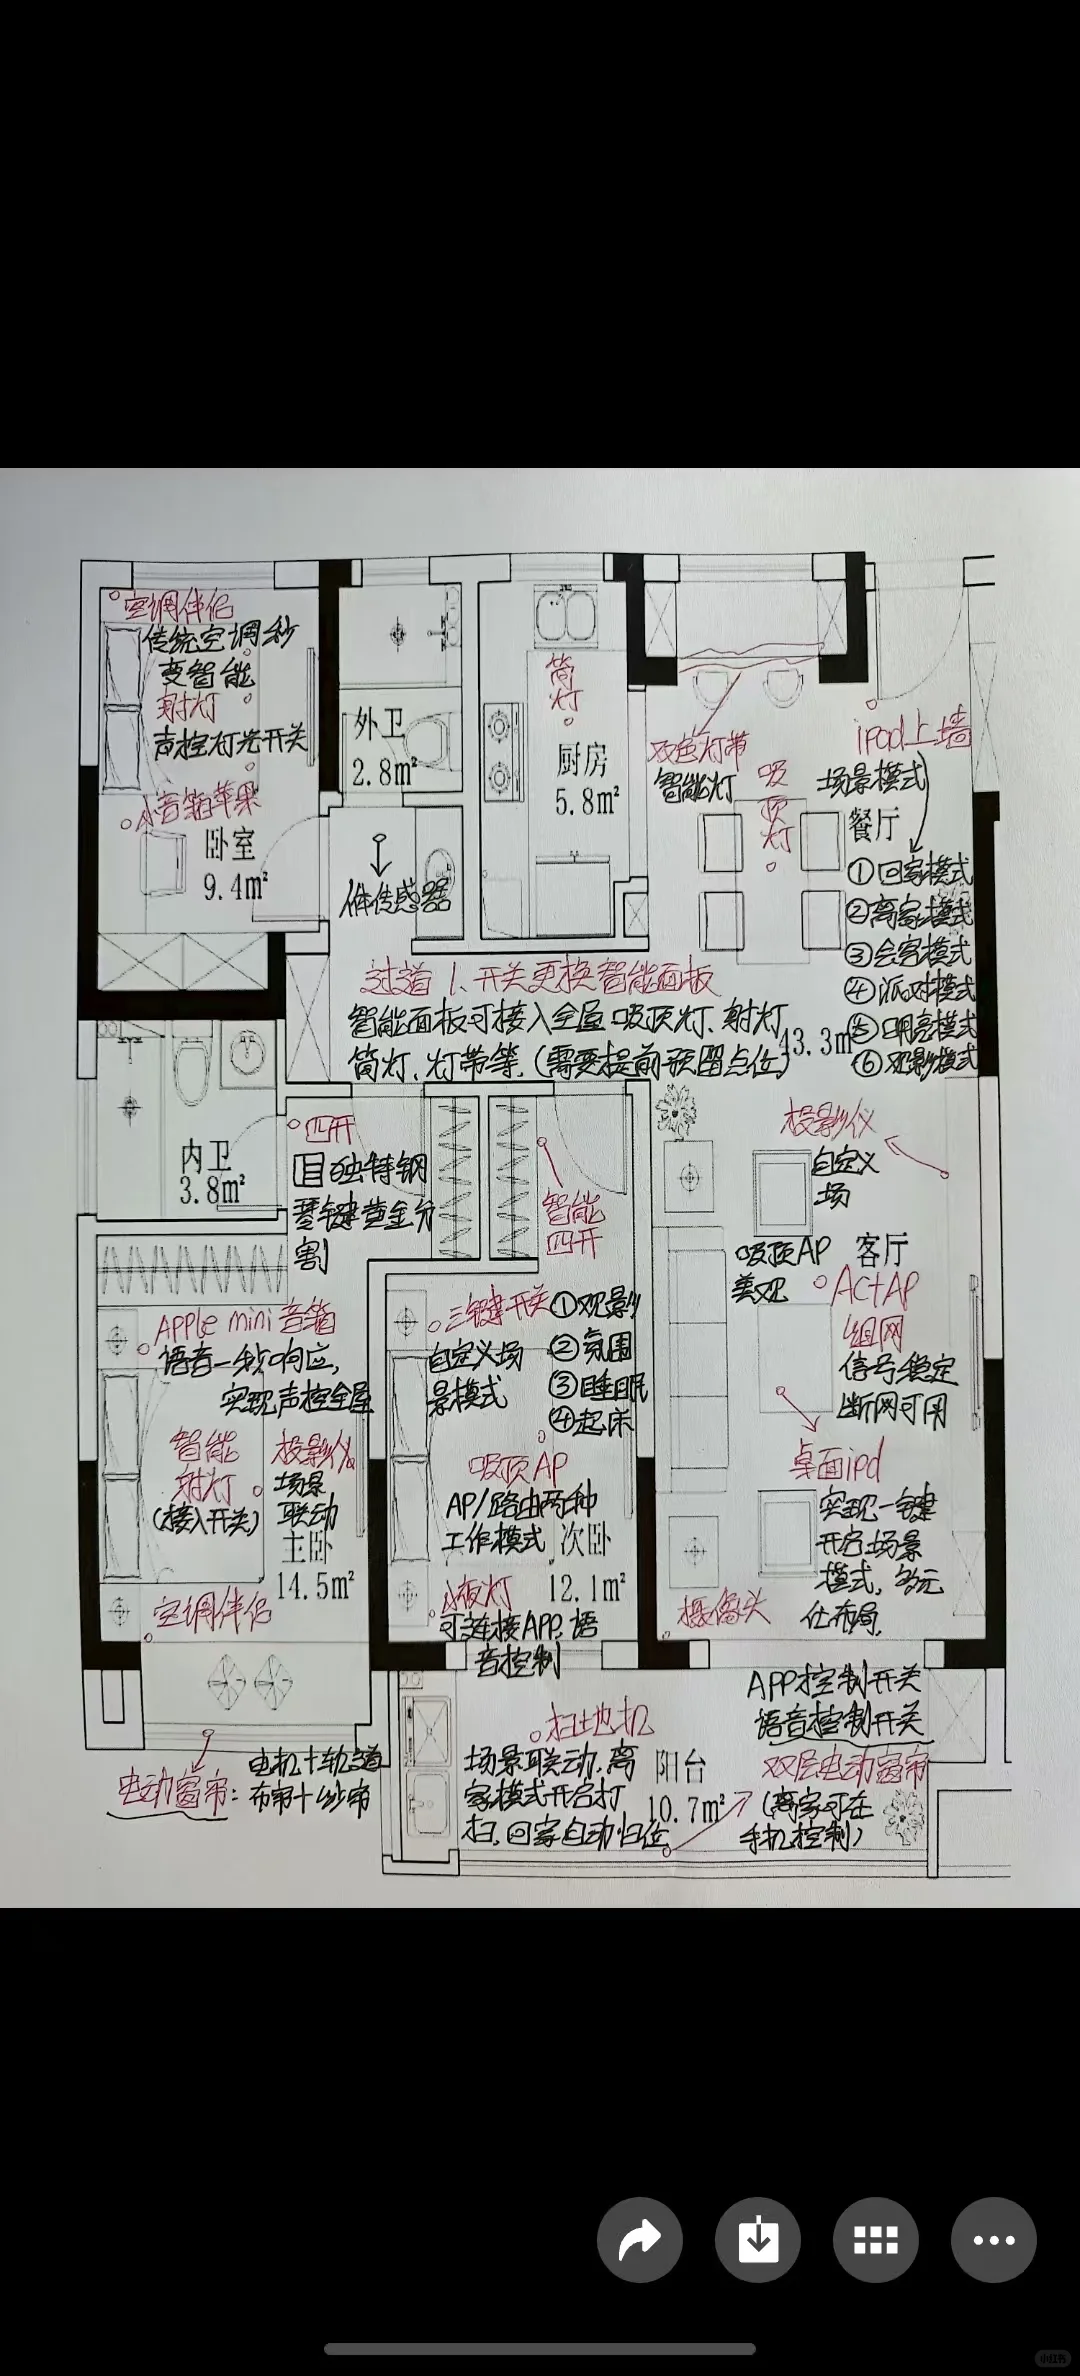 空调伴侣
传统空调秒
变智能
射灯
声控灯光开关
小音箱苹果
卧室
9.4m²
外卫
2.8m²
体传感器
筒
灯
厨房
5.8m²
双色灯带
智能灯
吸
顶
灯
ipad上墙
场景模式
餐厅
①回家模式
②离家模式
③会客模式
④派对模式
⑤明亮模式
⑥观影模式
过道1、开关更换智能面板
智能面板可接入全屋吸顶灯、射灯
筒灯、灯带等,(需要提前预留点位)
43.3m²
内卫
3.8m²
四开
独特钢
琴键黄金分
割
智能
四开
投影仪
自定义
场
吸顶AP
美观
客厅
AC+AP
组网
信号稳定
断网可用
Apple mini音箱
语音一秒响应,
实现声控全屋
智能
射灯
(接入开关)
投影仪
场景
联动
主卧
14.5m²
空调伴侣
三键开关
自定义场
景模式
①观影
②氛围
③睡眠
④起床
吸顶AP
AP/路由两种
工作模式
次卧
12.1m²
可连接APP,语
音控制
桌面ipd
实现一键
开启场景
模式,多元
化布局,
摄像头
电动窗帘:
电机+轨道
布帘+纱帘
扫地机
场景联动,离
家模式开启打
扫,回家自动归位
阳台
10.7m²
APP控制开关
语音控制开关
双层电动窗帘
(离家可在
手机控制)
小红书